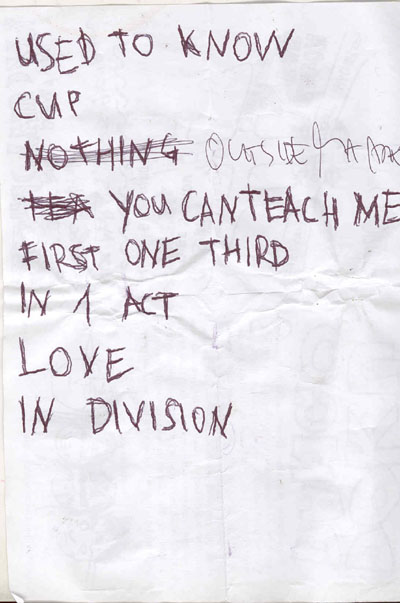 USED TO KNOW
CUP
NOTHING OUTSIDE
YOU CAN TEACH ME
FIRST ONE THIRD
IN 1 ACT
LOVE
IN DIVISION